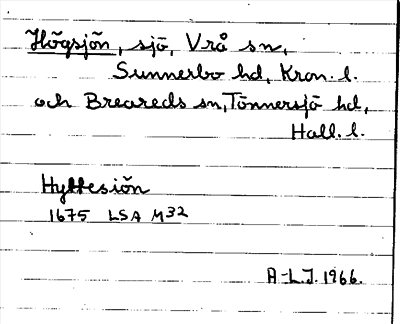 Högsjön, sjö, Vrå sn,
Sunnerbo hd, Kron. l.
och Breareds sn, Tönnersjö hd,
Hall. l.
Hyltesiön
1675 LSA M32
A-L.J. 1966.